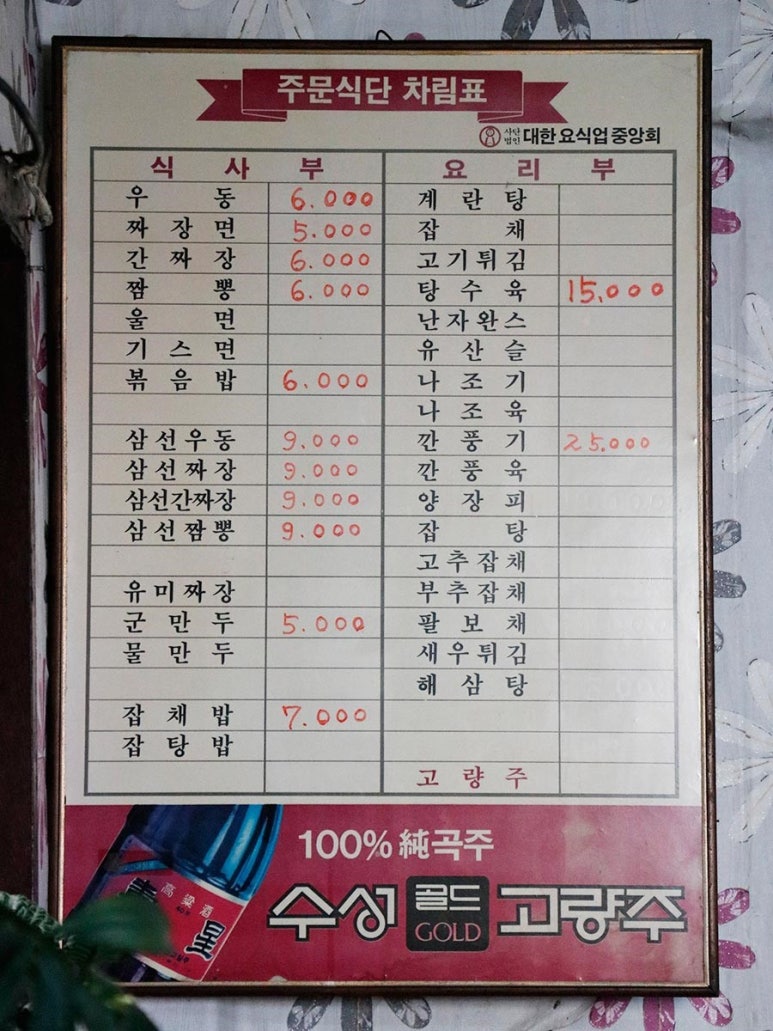 주문식단 차림표
사단법인 대한요식업중앙회
식사부
우동 6.000
짜장면 5.000
간짜장 6.000
짬뽕 6.000
울면
기스면
볶음밥 6.000
삼선우동 9.000
삼선짜장 9.000
삼선간짜장 9.000
삼선짬뽕 9.000
유미짜장
군만두 5.000
물만두
잡채밥 7.000
잡탕밥
요리부
계란탕
잡채
고기튀김
탕수육 15.000
난자완스
유산슬
나조기
나조육
깐풍기 25.000
깐풍육
양장피
잡탕
고추잡채
부추잡채
팔보채
새우튀김
해삼탕
고량주
100% 純곡주
수성 골드 GOLD 고량주
高粱酒
星